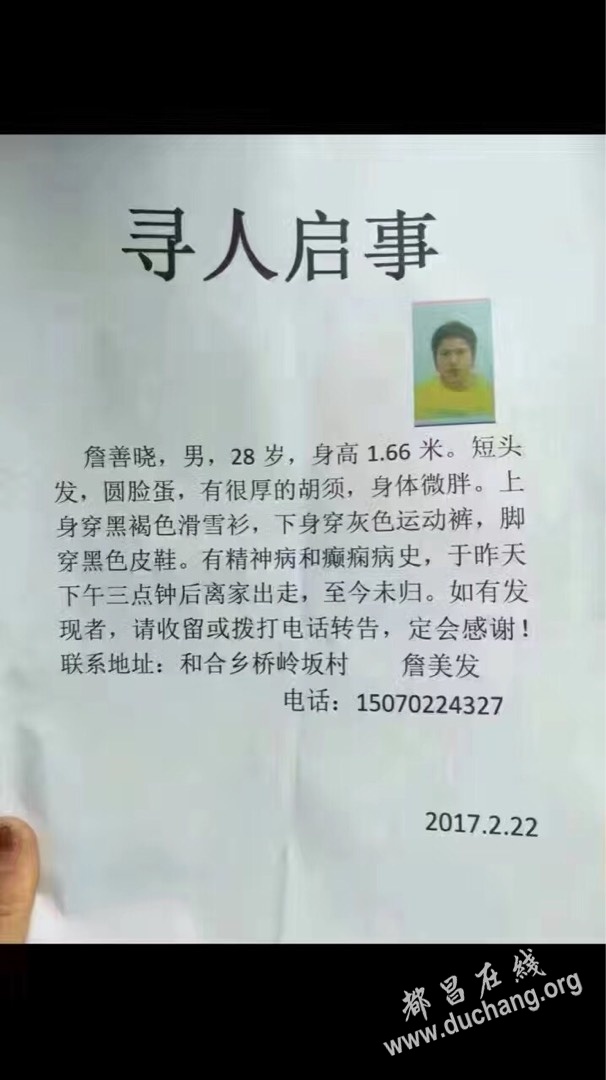 寻人启事
詹善晓，男，28 岁，身高 1.66 米。短头
发，圆脸蛋，有很厚的胡须，身体微胖。上
身穿黑褐色滑雪衫，下身穿灰色运动裤，脚
穿黑色皮鞋。有精神病和癫痫病史，于昨天
下午三点钟后离家出走，至今未归。如有发
现者，请收留或拨打电话转告，定会感谢！
联系地址：和合乡桥岭坂村 詹美发
电话：15070224327
2017.2.22
都昌在線
www.duchang.org